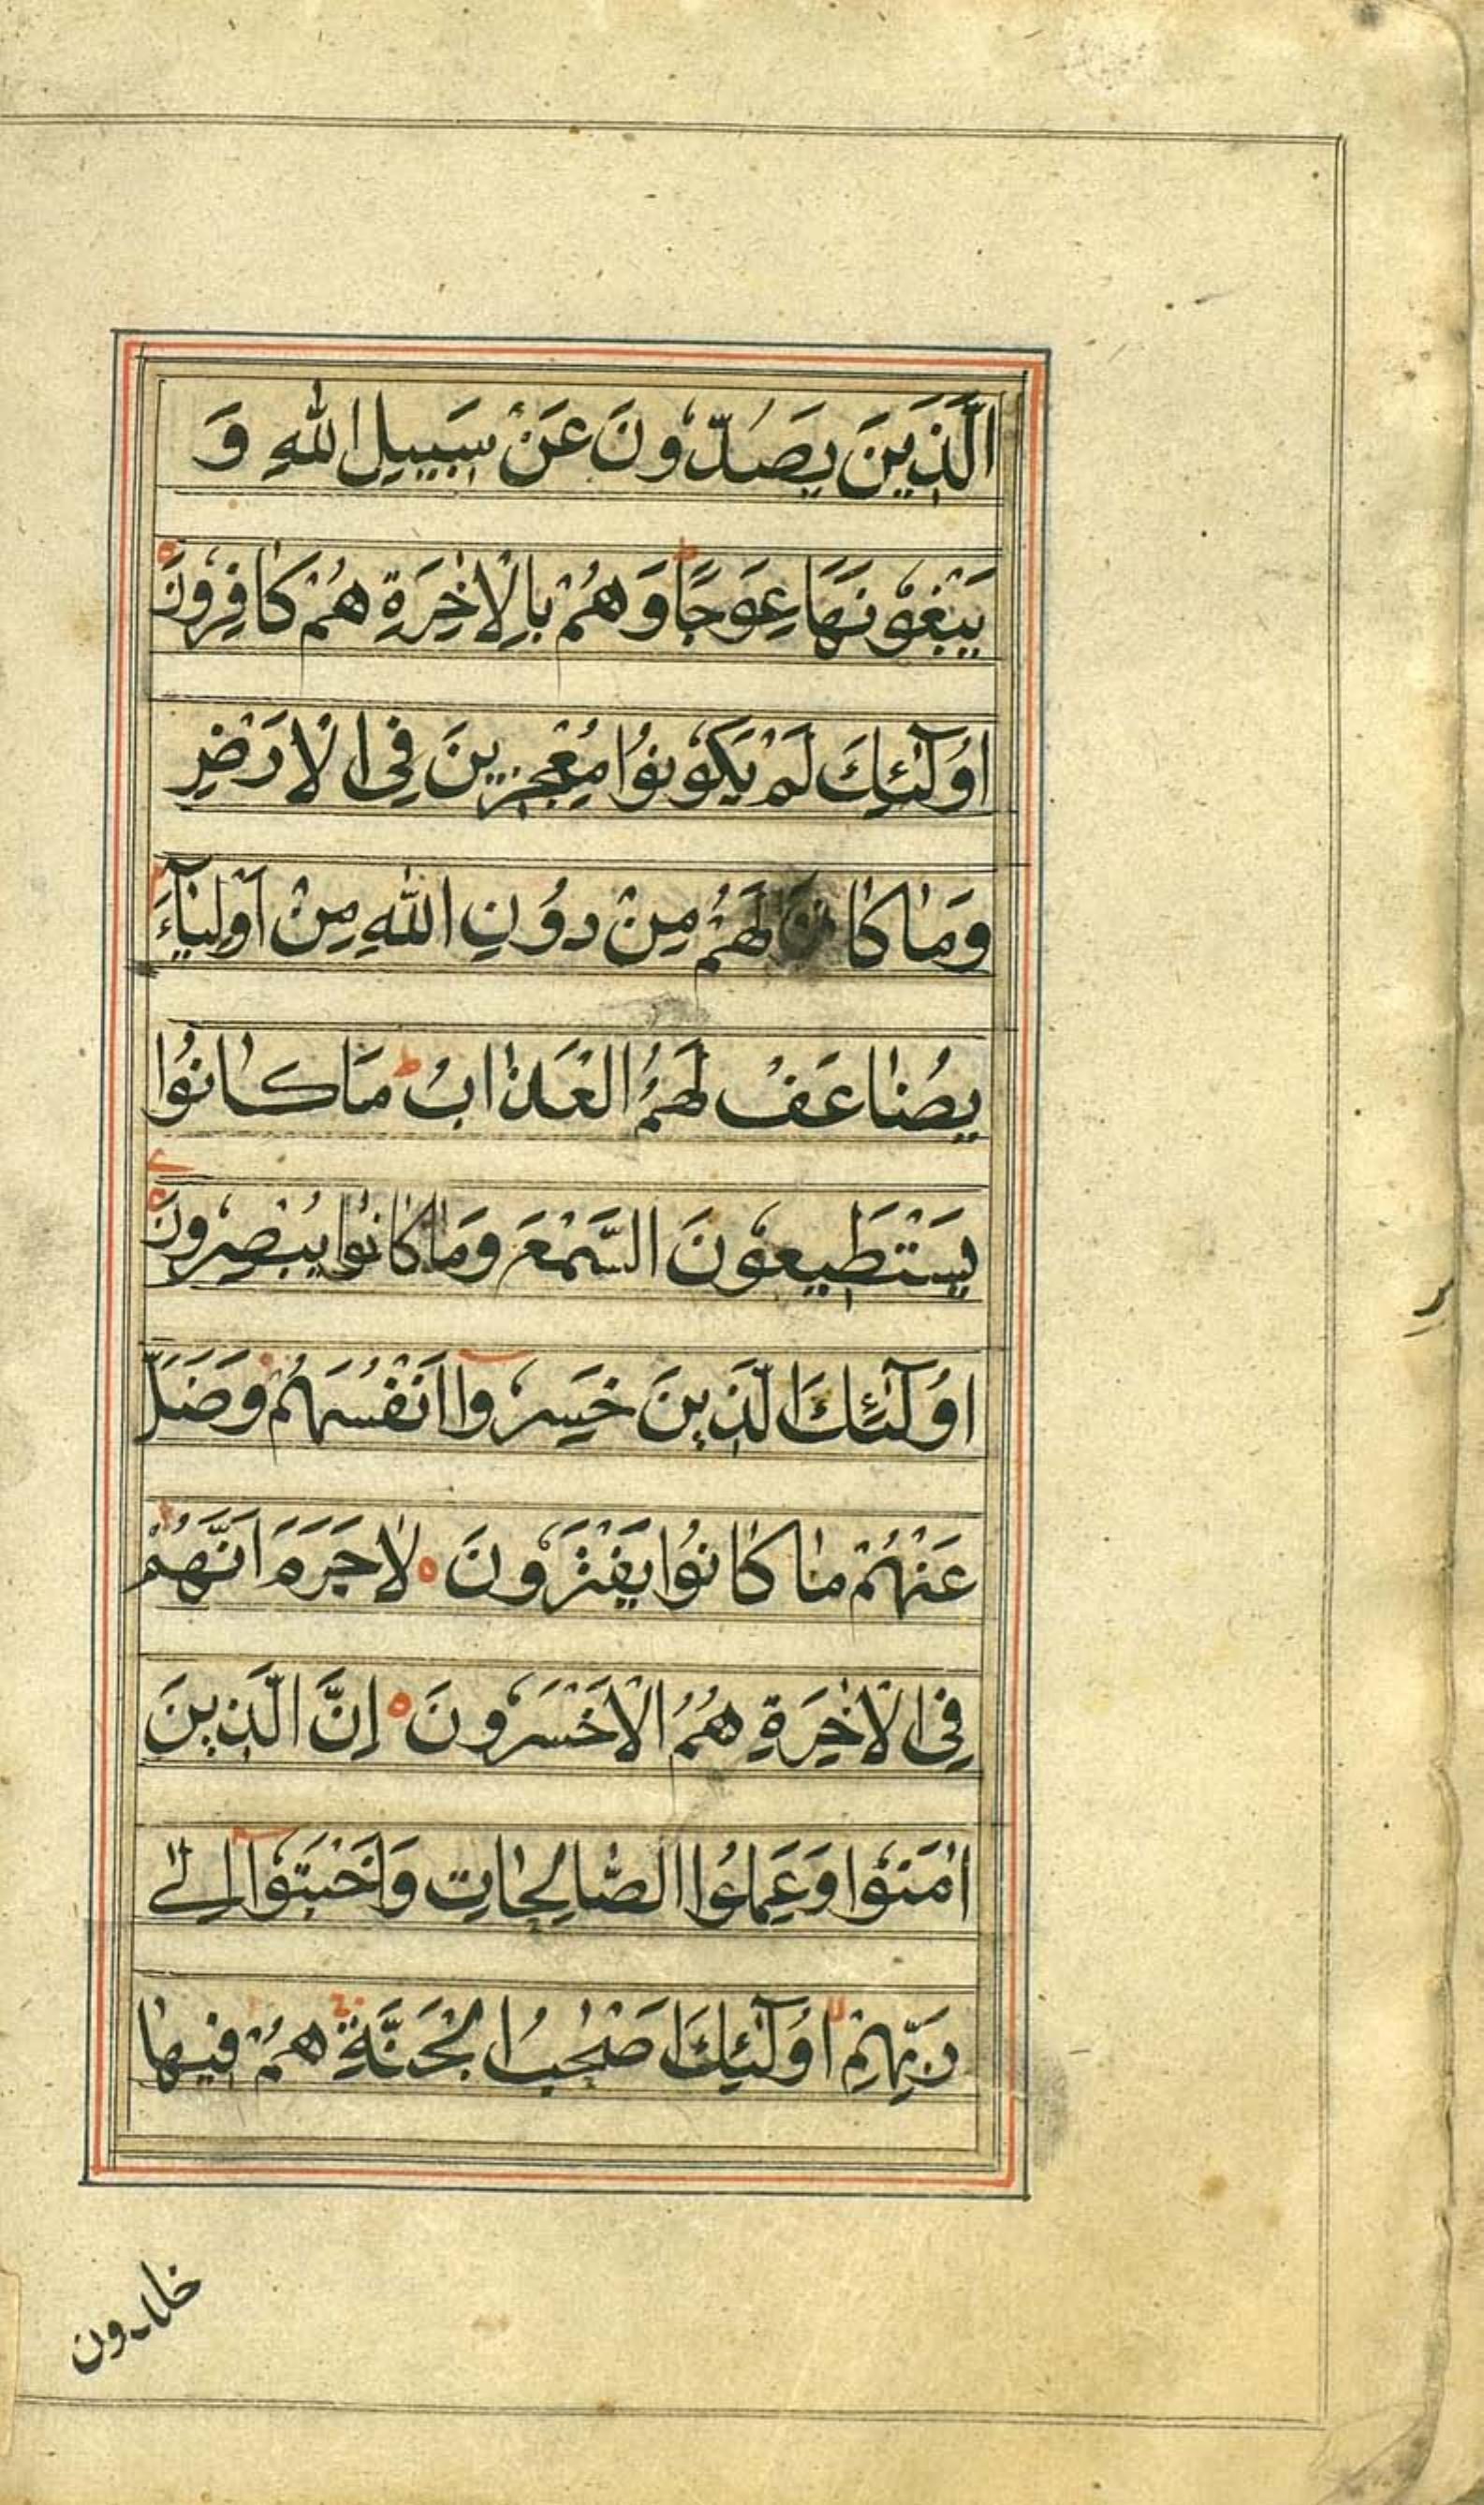 الَّذِينَ يَصُدُّونَ عَنْ سَبِيلِ اللهِ وَ
يَبْغُونَهَا عِوَجًا ط وَهُمْ بِالْاٰخِرَةِ هُمْ كَافِرُونَ ه
اُولٰٓئِكَ لَمْ يَكُونُوا مُعْجِزِينَ فِى الْاَرْضِ
وَمَا كَانَ لَهُمْ مِنْ دُونِ اللهِ مِنْ اَوْلِيَآءَ م
يُضَاعَفُ لَهُمُ الْعَذَابُ ط مَا كَانُوا
يَسْتَطِيعُونَ السَّمْعَ وَمَا كَانُوا يُبْصِرُونَ ه
اُولٰٓئِكَ الَّذِينَ خَسِرُوٓا اَنْفُسَهُمْ وَضَلَّ
عَنْهُمْ مَا كَانُوا يَفْتَرُونَ ه لَا جَرَمَ اَنَّهُمْ
فِى الْاٰخِرَةِ هُمُ الْاَخْسَرُونَ ه اِنَّ الَّذِينَ
اٰمَنُوا وَعَمِلُوا الصَّالِحَاتِ وَاَخْبَتُوٓا اِلٰى
رَبِّهِمْ لا اُولٰٓئِكَ اَصْحٰبُ الْجَنَّةِ ج هُمْ فِيهَا
خالدون